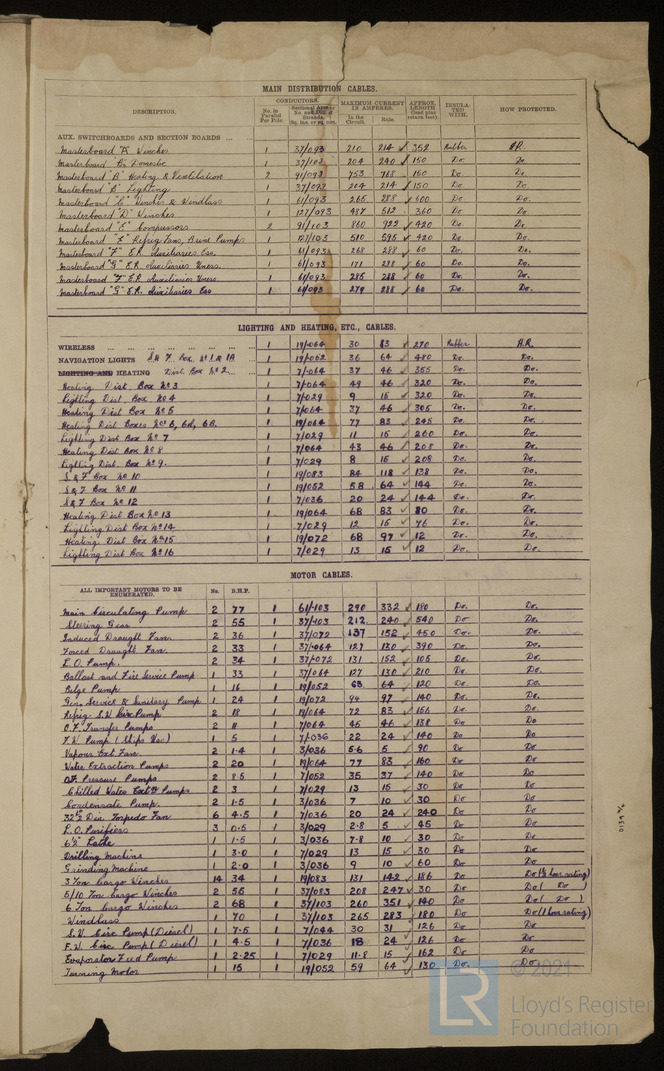 MAIN DISTRIBUTION CABLES.
DESCRIPTION. CONDUCTORS. No. in Parallel Per Pole. Sectional Area No. and Strands. Sq. ins. or sq. mm. MAXIMUM CURRENT IN AMPERES. In the Circuit. Rule. APPROX. LENGTH (lead plus return feet). INSULATED WITH. HOW PROTECTED.
AUX. SWITCHBOARDS AND SECTION BOARDS ...
Masterboard "A" Winches 1 37/093 210 214 ✓ 352 Rubber A.R.
Masterboard "B" Domestic 1 37/103 204 240 ✓ 150 Do Do
Masterboard "B" Heating & Ventilation 2 91/093 753 768 ✓ 150 Do. Do.
Masterboard "B" Lighting 1 37/093 204 214 ✓ 150 Do Do.
Masterboard "C" Winches & Windlass 1 61/093 265 288 ✓ 600 Do. Do.
Masterboard "D" Winches 1 127/093 487 512 ✓ 360 Do Do.
Masterboard "E" Compressors 2 91/103 860 922 ✓ 420 Do Do
Masterboard "E" Refrig Fans, Brine Pumps 1 127/103 510 595 ✓ 420 Do Do.
Masterboard "F" E.R. Auxiliaries Ess. 1 61/093 268 288 ✓ 60 Do. Do.
Masterboard "G" E.R. Auxiliaries Uness. 1 61/093 171 288 ✓ 60 Do. Do.
Masterboard "F" E.R. Auxiliaries Uness 1 61/093 285 288 ✓ 60 Do Do.
Masterboard "G" E.R. Auxiliaries Ess 1 61/093 279 288 ✓ 60 Do. Do.
LIGHTING AND HEATING, ETC., CABLES.
WIRELESS ... 1 19/064 30 83 ✓ 270 Rubber A.R.
NAVIGATION LIGHTS L & F Box No 1 & 1A 1 19/052 36 64 ✓ 480 Do. Do.
LIGHTING AND HEATING Dist. Box No 2 ... 1 7/064 37 46 ✓ 355 Do. Do.
Heating Dist. Box No 3 1 7/064 49 46 ✓ 320 Do. Do.
Lighting Dist. Box No 4 1 7/029 9 15 ✓ 320 Do. Do.
Heating Dist Box No 5 1 7/064 37 46 ✓ 305 Do. Do.
Heating Dist Boxes No 6, 6A, 6B. 1 19/064 77 83 ✓ 245 Do. Do.
Lighting Dist Box No 7 1 7/029 11 15 ✓ 260 Do. Do.
Heating Dist Box No 8 1 7/064 43 46 ✓ 208 Do. Do.
Lighting Dist. Box No 9. 1 7/029 8 15 ✓ 208 Do. Do.
L & F Box No 10 1 19/083 84 118 ✓ 138 Do. Do.
L & F Box No 11 1 19/052 58 64 ✓ 144 Do. Do.
L & F Box No 12 1 7/036 20 24 ✓ 144 Do. Do.
Heating Dist Box No 13 1 19/064 68 83 ✓ 80 Do. Do.
Lighting Dist Box No 14 1 7/029 12 15 ✓ 76 Do. Do.
Heating Dist Box No 15 1 19/072 68 97 ✓ 12 Do. Do.
Lighting Dist Box No 16 1 7/029 13 15 ✓ 12 Do. Do.
MOTOR CABLES.
ALL IMPORTANT MOTORS TO BE ENUMERATED. No. B.H.P.
Main Circulating Pump 2 77 1 61/103 290 332 ✓ 180 Do. Do.
Steering Gear 2 55 1 37/103 212 240 ✓ 540 Do. Do.
Induced Draught Fan. 2 36 1 37/072 137 152 ✓ 450 Do. Do.
Forced Draught Fan. 2 33 1 37/064 127 130 ✓ 390 Do. Do.
L.O. Pump. 2 34 1 37/072 131 152 ✓ 105 Do. Do.
Ballast and Fire Service Pump 1 33 1 37/064 127 130 ✓ 210 Do. Do.
Bilge Pump 1 16 1 19/052 63 64 ✓ 120 Do. Do.
Gen. Service & Sanitary Pump 1 24 1 19/072 94 97 ✓ 140 Do. Do.
Refrig. S.W. Circ Pump 2 18 1 19/064 72 83 ✓ 156 Do. Do.
O.F. Transfer Pumps 2 11 1 7/064 45 46 ✓ 138 Do Do
F.W. Pump (Ships Use) 1 5 1 7/036 22 24 ✓ 140 Do Do
Vapour Ext Fan. 2 1.4 1 3/036 5.6 5 ✓ 90 Do Do.
Water Extraction Pumps 2 20 1 19/064 77 83 ✓ 160 Do Do.
O.F. Pressure Pumps 2 8.5 1 7/052 35 37 ✓ 140 Do Do
Chilled Water Extn Pumps 2 3 1 7/029 13 15 ✓ 30 Do Do
Condensate Pump. 2 1.5 1 3/036 7 10 ✓ 30 Do Do
32½" Dia. Torpedo Fan 6 4.5 1 7/036 20 24 ✓ 240 Do Do.
L.O. Purifiers 3 0.5 1 3/029 2.8 5 ✓ 45 Do Do
6½" Lathe 1 1.5 1 3/036 7.8 10 ✓ 30 Do Do.
Drilling Machine 1 3.0 1 7/029 13 15 ✓ 30 Do Do.
Grinding Machine 1 2.0 1 3/036 9 10 ✓ 60 Do Do.
3 Ton Cargo Winches 14 34 1 19/083 131 142 ✓ 186 Do Do (½ hour rating)
5/10 Ton Cargo Winches 2 55 1 37/083 208 247 ✓ 30 Do Do ( Do )
6 Ton Cargo Winches 2 68 1 37/103 260 351 ✓ 140 Do Do ( Do )
Windlass 1 70 1 37/103 265 283 ✓ 180 Do Do (1 hour rating)
S.W. Circ Pump (Diesel) 1 7.5 1 7/044 30 31 ✓ 126 Do Do
F.W. Circ Pump (Diesel) 1 4.5 1 7/036 18 24 ✓ 126 Do. Do.
Evaporator Feed Pump 1 2.25 1 7/029 11.8 15 ✓ 162 Do Do.
Turning Motor 1 15 1 19/052 59 64 ✓ 130 Do. Do.
© 2021
LR
Lloyd's Register
Foundation